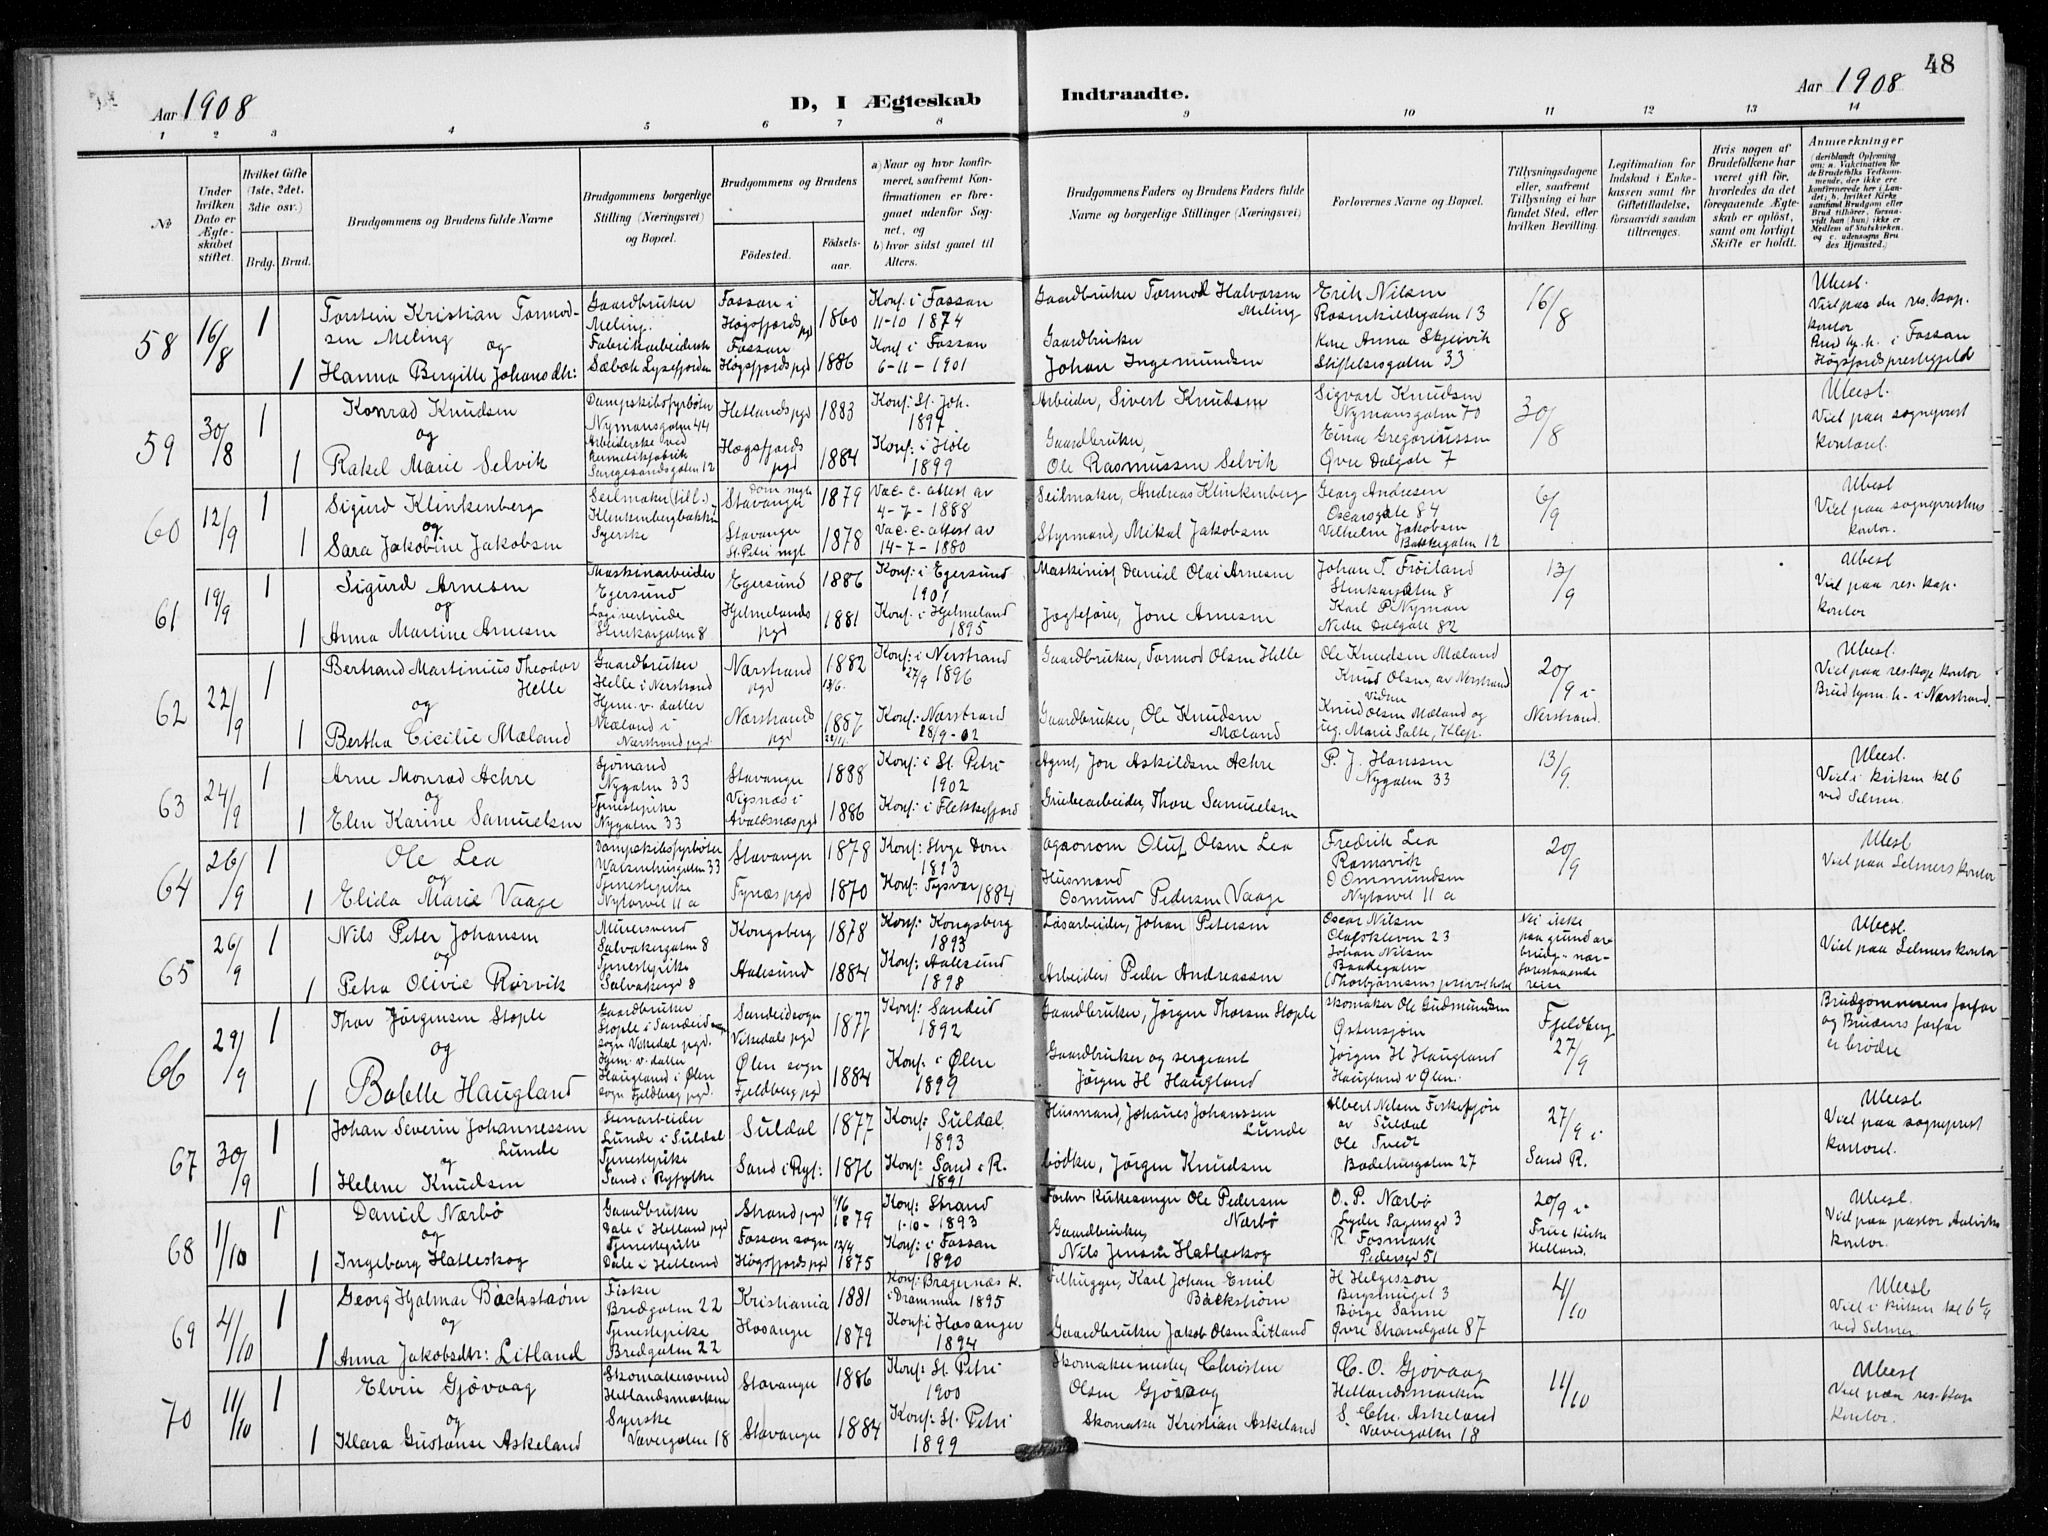 48
Aar 1908
D, I Ægteskab
Indtraadte.
Aar 1908
1 2 3 4 5 6 7 8 9 10 11 12 13 14
№
Under hvilken Dato er Ægteskabet stiftet.
Hvilket Gifte (1ste, 2det, 3die osv.)
Brdg. Brud.
Brudgommens og Brudens fulde Navne
Brudgommens borgerlige Stilling (Næringsvei) og Bopæl.
Brudgommens og Brudens
Fødested.
Fødselsaar.
a) Naar og hvor konfirmeret, saafremt Konfirmationen er foregaaet udenfor Sognet, og
b) hvor sidst gaaet til Alters.
Brudgommens Faders og Brudens Faders fulde Navne og borgerlige Stillinger (Næringsvei)
Forlovernes Navne og Bopæl.
Tillysningsdagene eller, saafremt Tillysning ei har fundet Sted, efter hvilken Bevilling.
Legitimation for Indskud i Enkekassen samt for Giftetilladelse, forsaavidt saadan tiltrænges.
Hvis nogen af Brudefolkene har været gift før, hvorledes da det foregaaende Ægteskab er opløst, samt om lovligt Skifte er holdt.
Anmerkninger (deriblandt Oplysning om: a. Vakcination for de Brudefolks Vedkommende, der ikke ere konfirmerede her i Landet; b. hvilket Kirkesamfund Brudgom eller Brud tilhører, forsaavidt han (hun) ikke er Medlem af Statskirken, og c. udensogns Brudes Hjemsted.)
58
16/8
1
Torstein Kristian Tormodsen Meling
og
1 Hanna Bergitte Johansdtr:
Gaardbruker
Meling.
Fabrikarbeiderske
Sæbøk Lysefjorden
Fossan i Høgsfjords pgd 1860
Fossan Høgsfjords pgd 1886
Konf. i Fossan
11-10 1874
Konf. i Fossan
6-11-1901
Gaardbruker Tormod Halvorsen Meling
Gaardbruker
Johan Ingemundsen
Erik Nilsen
Rosenkildegaten 13
Kone Anna Skjeivik
Stiftelsesgaten 33
16/8
Ubesl.
Viel paa den res. kap. kontor
Brud hj.h. i Fossan
Høgsfjords prestegjeld
59
30/8
1
Konrad Knudsen
og
1 Rakel Marie Selvik
Dampskibsfyrbøter
Nymansgaten 44
Arbeiderske ved
hermetikfabrik
Hetlands pgd 1883
Høgsfjords pgd 1884
Konf: St. Joh.
1897
Konf: i Høle
1899
Arbeider, Sivert Knudsen
Gaardbruker,
Ole Rasmussen Selvik
Sigvart Knudsen
Nymansgaten 70
Einar Gregoriussen
Øvre Dalgate 7
30/8
Ubesl.
Viel paa sogneprest kontoret.
60
12/9
1
Sigurd Klinkenberg
og
1 Sara Jakobine Jakobsen
Seilmaker
Klinkenbergbakken
Syerske
Stavanger Dom mgl 1879
Stavanger St. Petri mgl 1878
Vac. c. attest av
4-7-1888
Vac. c. attest av
14-7-1880
Seilmaker, Andreas Klinkenberg
Styrmand, Mikal Jakobsen
Georg Andresen
Oscarsgate 84
Vilhelm Jakobsen
Bakkegaten 12
6/9
Ubesl
Viel paa sogneprestens kontor.
61
19/9
1
Sigurd Arnesen
og
1 Anna Martine Arnesen
Maskinarbeider
Egersund
Logivertinde
Stenkargaten 8
Egersund 1886
Hjelmelands pgd 1881
Konf: i Egersund
1901
Konf. i Hjelmeland
1895
Maskinist Daniel Olai Arnesen
Jagtefører, Jone Arnesen
Johan T. Frøiland
Stenkargaten 8
Karl P. Nyman
Nedre Dalgate 82
13/9
Ubesl
Viel paa res. kap. kontor
62
22/9
1
Bertrand Martinius Theodor Helle
og
1 Bertha Cicilie Mæland
Gaardbruker
Helle i Nerstrand
Hjem. v. datter
Mæland i
Nærstrand pgd.
Nærstrand pgd 1882 13/6.
Nærstrands pgd 1887 22/11.
Konf: i Nerstrand
27/9 1896
Konf: Nærstrand
28/9-02
Gaardbruker, Tormod Olsen Helle
Gaardbruker, Ole Knudsen Mæland
Ole Knudsen Mæland
Knud Olsen, av Nerstrand
vidne
Knud Olsen Mæland og
ug. Marie Salte, Klep.
20/9 i
Nerstrand.
Ubesl.
Viel paa res. kap. kontor
Brud hjem. h. i Nærstrand.
63
24/9
1
Arne Monrad Achre
og
1 Elen Karine Samuelsen
Sjømand
Nygaten 33
Tjenestepike
Nygaten 33
Stavanger 1888
Vigsnæs i Avaldsnæs pgd 1886
Konf: i St. Petri
1902
Konf: i Flekkefjord
Agent, Jon Askildsen Achre
Grubearbeider, Thore Samuelsen
P. J. Hanssen
Nygaten 33
13/9.
Ubesl.
Viel i kirken kl 6
ved Selmer.
64
26/9
1
Ole Lea
og
1 Elida Marie Vaage
Dampskibsfyrbøter
Waisenhusgaten 33
Tjenestepike
Nytorvet 11 a
Stavanger 1878
Tysvær pgd 1870
Konf: Dom
1893
Konf. Tysvær 1884
agronom Oluf Olsen Lea
Husmand
Osmund Pedersen Vaage
Fredrik Lea
Ramsvik
O Ommundsen
Nytorvet 11 a
20/9
Ubesl
Viel paa Selmers kontor
65
26/9
1
Nils Peter Johansen
og
1 Petra Olivie Rørvik
Murersvend
Solvakergaten 8
Tjenestepike
Solvakergt 8
Kongsberg 1878
Aalesund 1884
Konf: Kongsberg
1893
Konf: Aalesund
1898
Løsarbeider, Johan Petersen
Arbeider Peder Andreassen
Oscar Nilsen
Olafskleven 23
Johan Nilsen
Badegaten
Nei ikke
paa grund av
brudg. nær-
forestaaende
reise
Ubesl.
Viel paa Selmers kontor
66
29/9
1
Thor Jørgensen Stople
og
1 Bolette Haugland
Gaardbruker
Stople i Sandeid
sogn Vikedal pgd.
Hjem. v. datter
Haugland i Ølen
sogn Fjeldberg pgd.
Sandeid sogn Vikedals pgd 1877
Ølen sogn Fjeldberg pgd 1884
Konf: Sandeid
1892
Konf: i Ølen
1899
Gaardbruker, Jørgen Thorsen Stople
Gaardbruker og sergeant
Jørgen H. Haugland
skomaker Ole Gudmundsen
Østensjøen
Jørgen H Haugland
Haugland v Ølen.
Fjeldberg
27/9
Brudgommens farfar
og Brudens farfar
er brødre
67
30/9
1
Johan Severin Johannessen Lunde
og
1 Helene Knudsen
Stenarbeider
Lunde i Suldal
Tjenestepike
Sand i Ryfylke
Suldal 1877
Sand i Ryf: 1876
Konf: Suldal
1893
Konf: Sand i R.
1891
Husmand, Johannes Johanssen Lunde
bødker, Jørgen Knudsen
Albert Nilsen Fiskefjøn
av Suldal
Ole Tvedt
Badehusgaten 27
27/9 i
Sand R.
Ubesl
Viel paa sogneprest kontoret.
68
1/10
1
Daniel Nærbø
og
1 Ingeborg Hatleskog
Gaardbruker
Dale i Hetland pgd
Tjenestepike
Dale i Hetland
Strand pgd 4/6 1879
Fossan sogn Høgsfjords pgd 12/4 1875
Konf: Strand
1-10-1893
Konf: i Fossan
1890
Forhv kirkesanger Ole Pedersen Nærbø
Gaardbruker,
Nils Jensen Hatleskog
O. P. Nærbø
Lyder Sagensgt 3
R Fosmark
Pedersgt 51
20/9 i
Frue Kirke
Hetland.
Ubesl.
Viel paa pastor Aalviks kontor.
69
4/10
1
Georg Hjalmar Bäckstrøm
og
1 Anna Jakobsdtr: Litland
Fisker
Bredgaten 22
Tjenestepike
Bredgaten 22
Kristiania 1881
Hosanger 1879
Konf: Bragernæs K.
i Drammen 1895
Konf i Hosanger
1894
Filhugger, Karl Johan Emil Bäckstrøm
Gaardbruker Jakob Olsen Litland
H Helgesson
Bergsmuget 3
Børge Sanne
Øvre Strandgate 87
4/10
Ubesl
Viel i kirken kl 6 1/4
ved Selmer
70
11/10
1
Elvin Gjøvaag
og
1 Klara Gustanse Askeland
Skomakersvend
Hetlandsmarken
Syerske
Vævergaten 18
Stavanger 1886
Stavanger 1884
Konf: St. Petri
1900
Konf: St. Petri
1899
Skomakermester, Christen
Olsen Gjøvaag
Skomaker Kristian Askeland
C. O. Gjøvaag
Hetlandsmarken
S. Chr. Askeland
Vævergaten 18
11/10
Ubesl
Viel paa res. kap kontor.